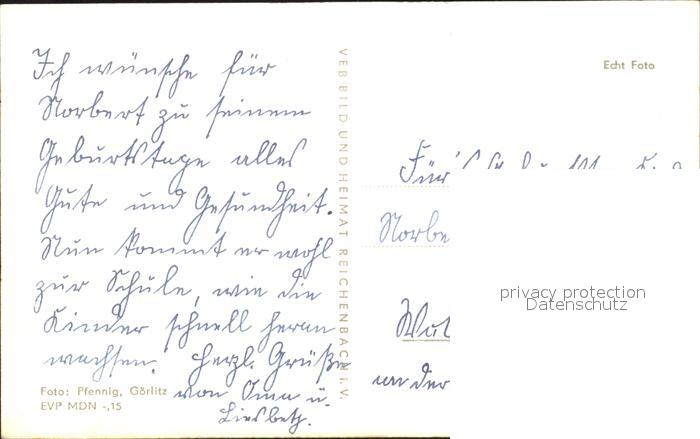 Ich wünsche für
Norbert zu seinem
Geburtstage alles
Gute und Gesundheit.
Nun kommt er wohl
zur Schule, wie die
Kinder schnell heran
wachsen. Herzl. Grüße
von Oma u.
Liesbeth.
Foto: Pfennig, Görlitz
EVP MDN -,15
VEB BILD UND HEIMAT REICHENBACH i. V.
Echt Foto
Für
Norbe
an der
privacy protection
Datenschutz